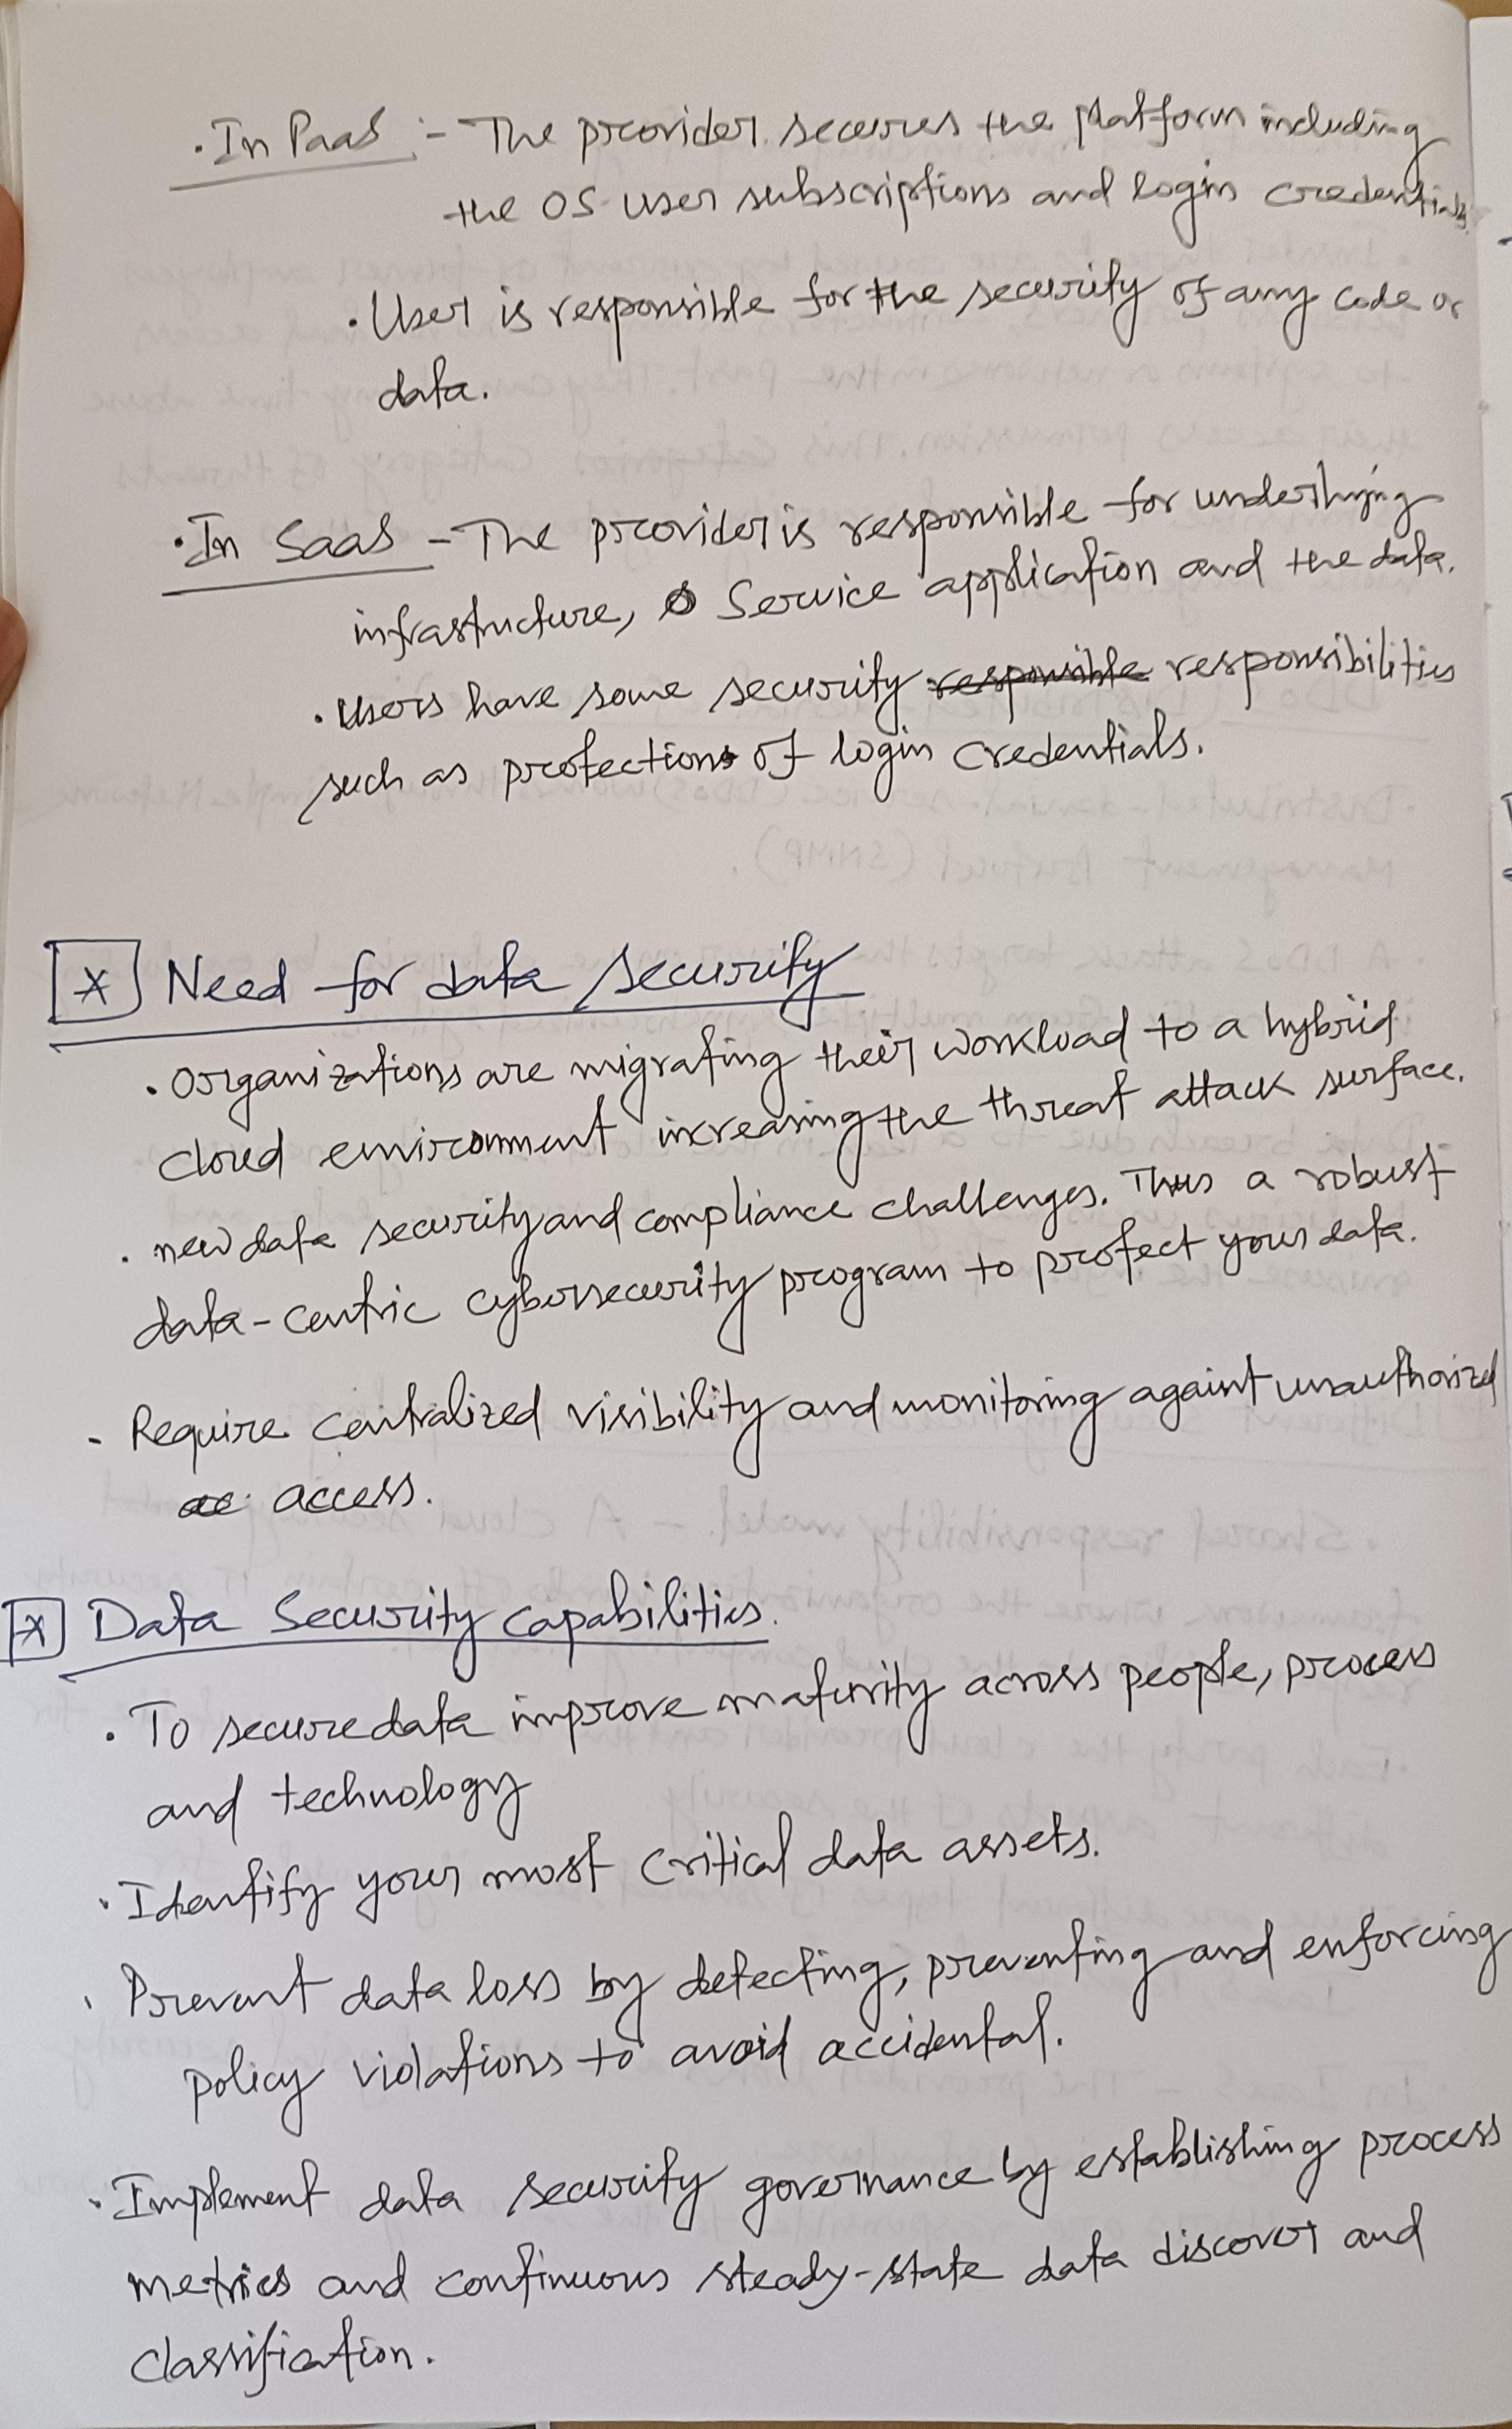 ·In PaaS :- The provider secures the platform including
the OS user subscriptions and login credentials.
·User is responsible for the security of any code or
data.
·In SaaS - The provider is responsible for underlying
infrastructure, Service application and the data.
·Users have some security responsible responsibilities
such as protection of login credentials.
[*] Need for data security
·Organizations are migrating their workload to a hybrid
cloud environment increasing the threat attack surface.
· new data security and compliance challenges. Thus a robust
data-centric cybersecurity program to protect your data.
- Require centralized visibility and monitoring againt unauthorized
ac access.
[*] Data Security capabilities.
· To secure data improve maturity across people, process
and technology
· Identify your most critical data assets.
· Prevent data loss by detecting, preventing and enforcing
policy violations to avoid accidental.
· Implement data security governance by establishing process
metrics and continuous steady-state data discover and
classification.